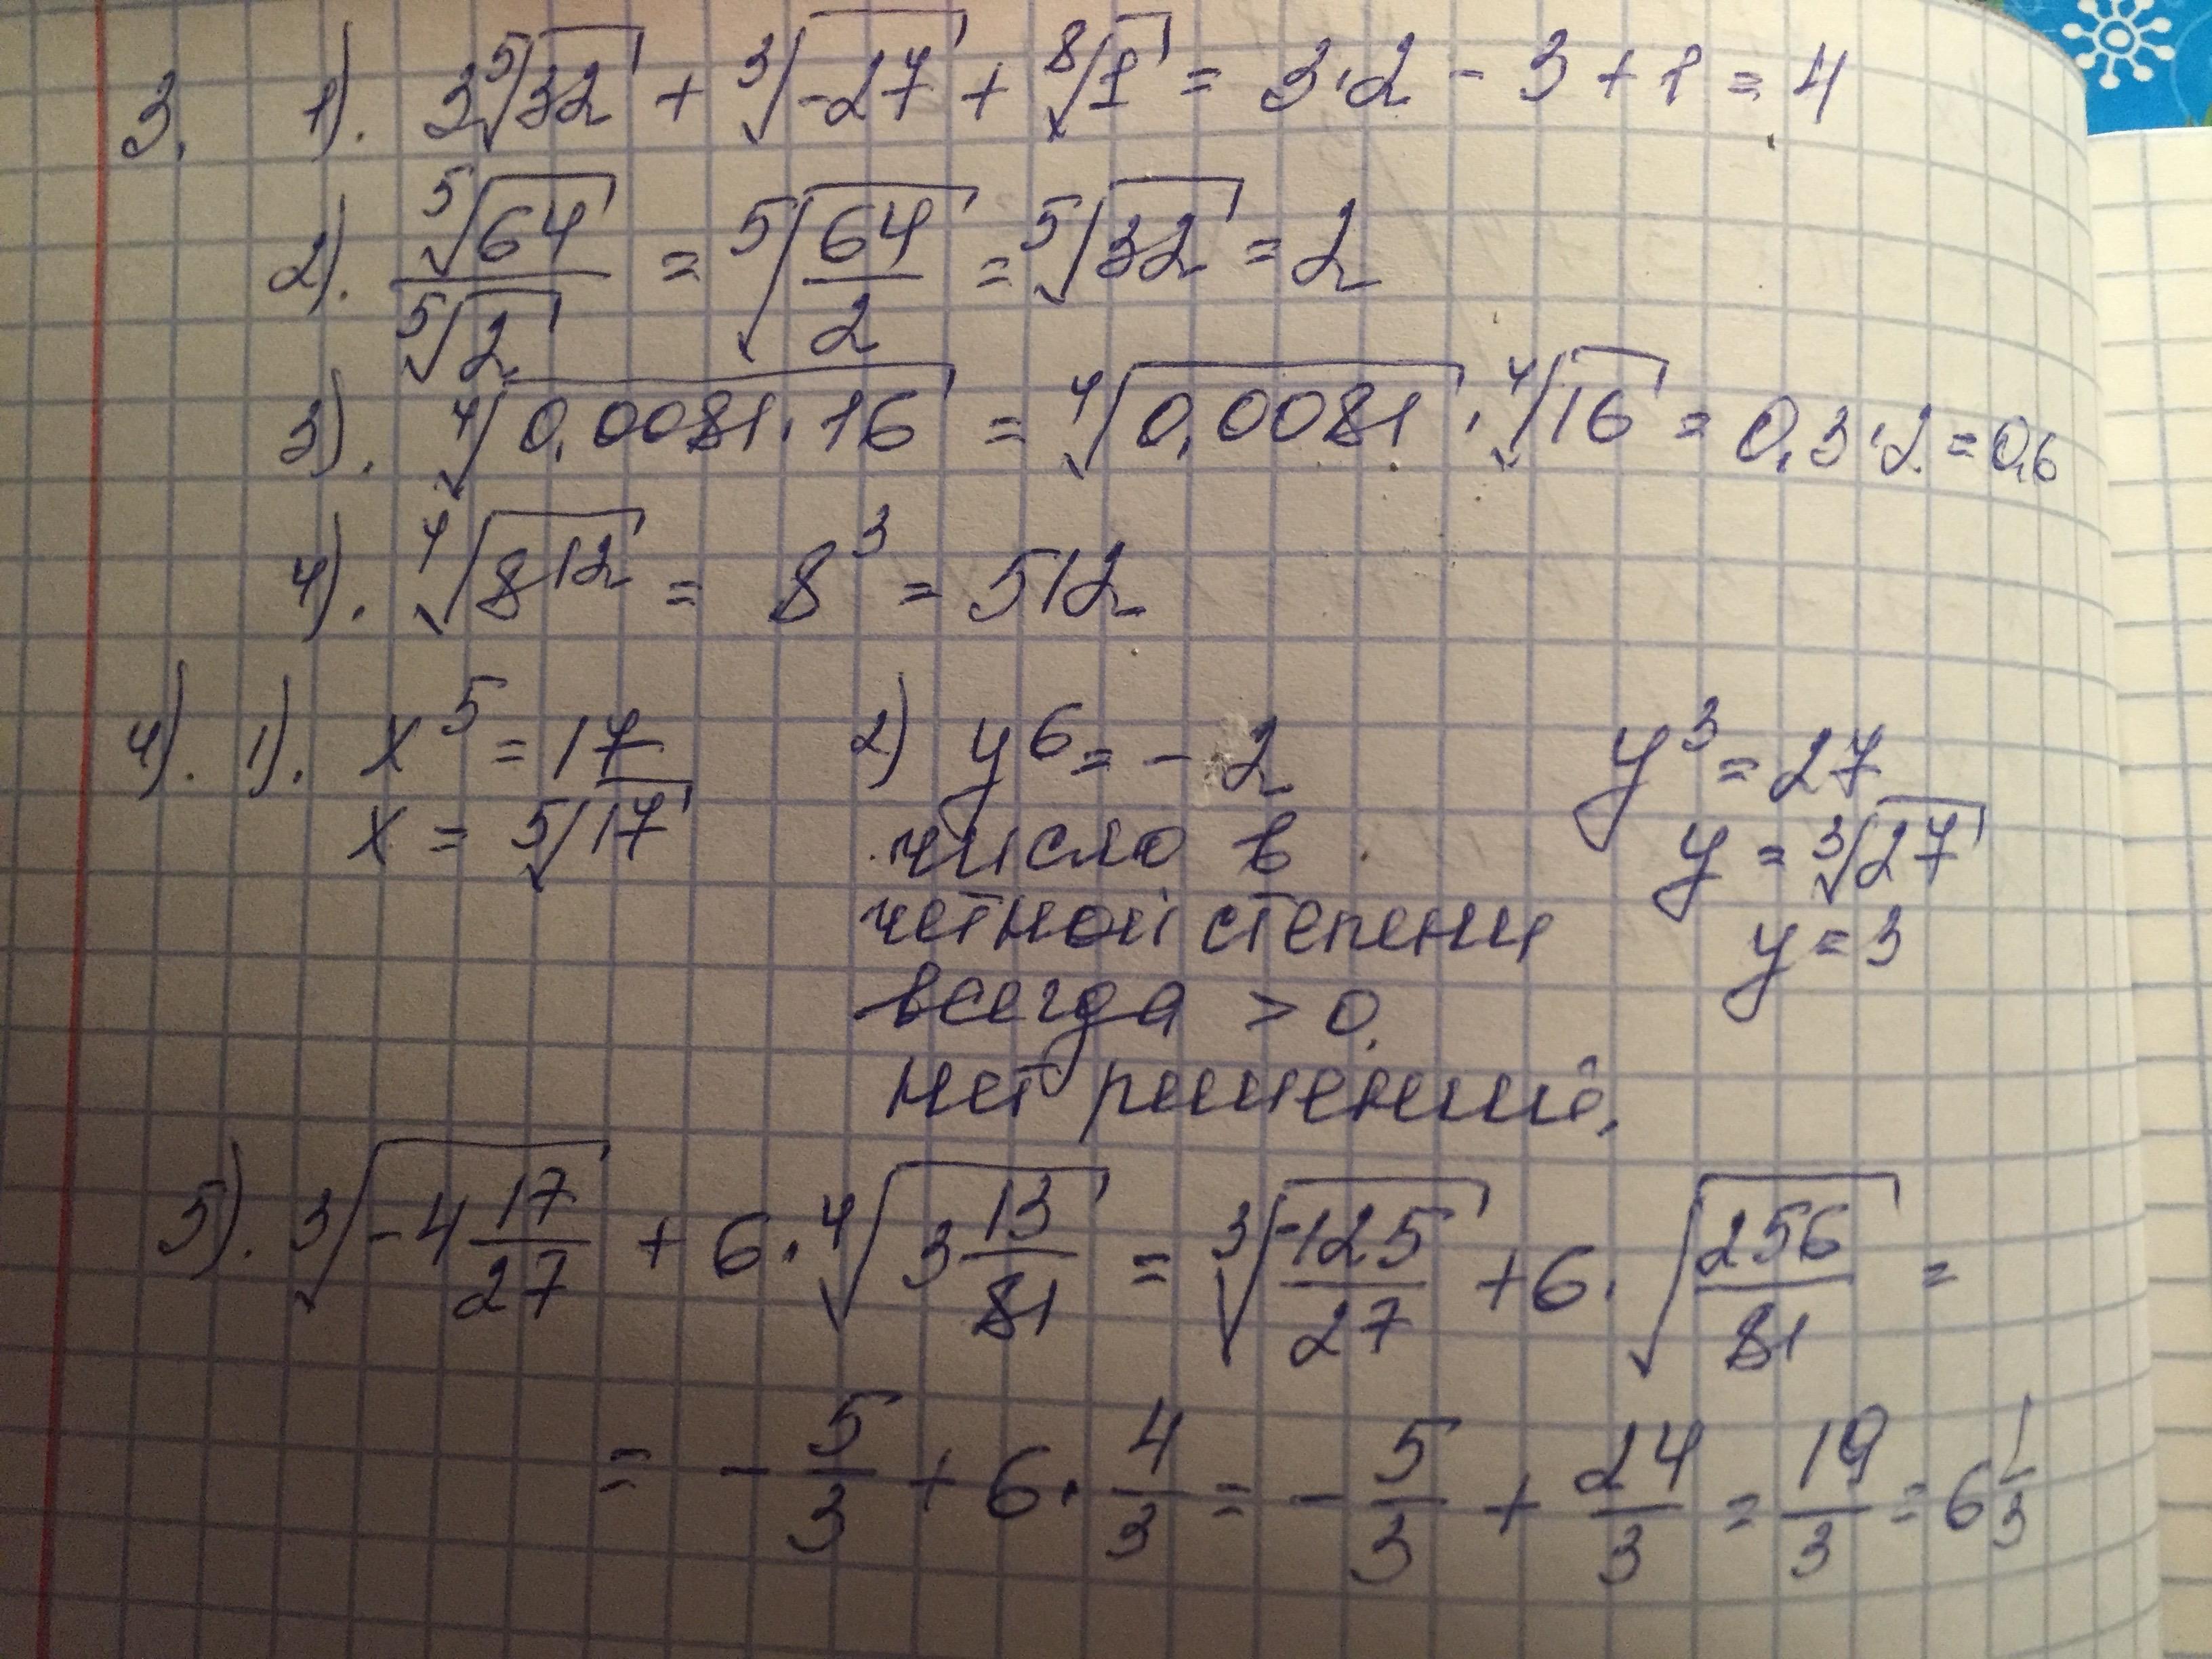 3. 1). 3⁵√32 + ³√-27 + ⁸√1 = 3·2 - 3 + 1 = 4
2). ⁵√64 / ⁵√2 = ⁵√(64/2) = ⁵√32 = 2
3). ⁴√(0,0081·16) = ⁴√0,0081 · ⁴√16 = 0,3·2 = 0,6
4). ⁴√8¹² = 8³ = 512
4). 1). x⁵ = 17 2) y⁶ = - 2 y³ = 27
x = ⁵√17 число в y = ³√27
четной степени y = 3
всегда > 0.
нет решений.
5). ³√(-4 17/27) + 6·⁴√(3 13/81) = ³√(-125/27) + 6·√(256/81) =
= - 5/3 + 6· 4/3 = - 5/3 + 24/3 = 19/3 = 6 1/3